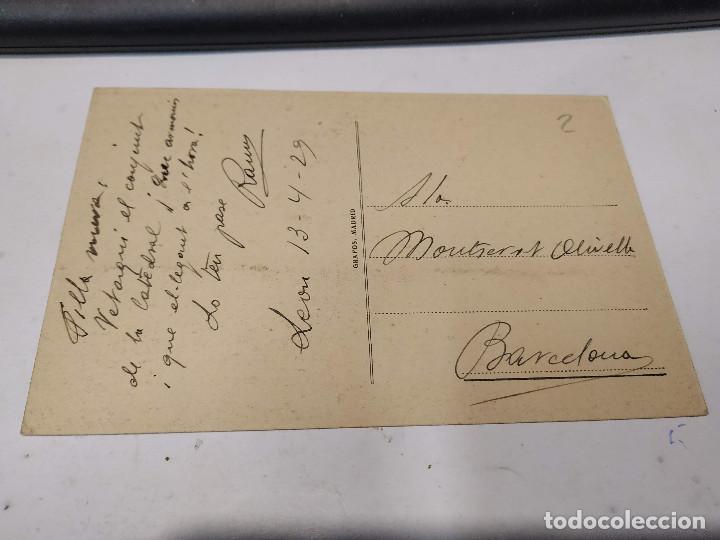 Filla meva,
Vet aquí el conjunt
de la Catedral i que armoniós
i que el·legant a l'hora!
Lo teu pare
Ramon
Leon 13-4-29
GRAFOS. MADRID
2
Sta
Montserrat Olivella
Barcelona
todocoleccion
todocoleccion.net